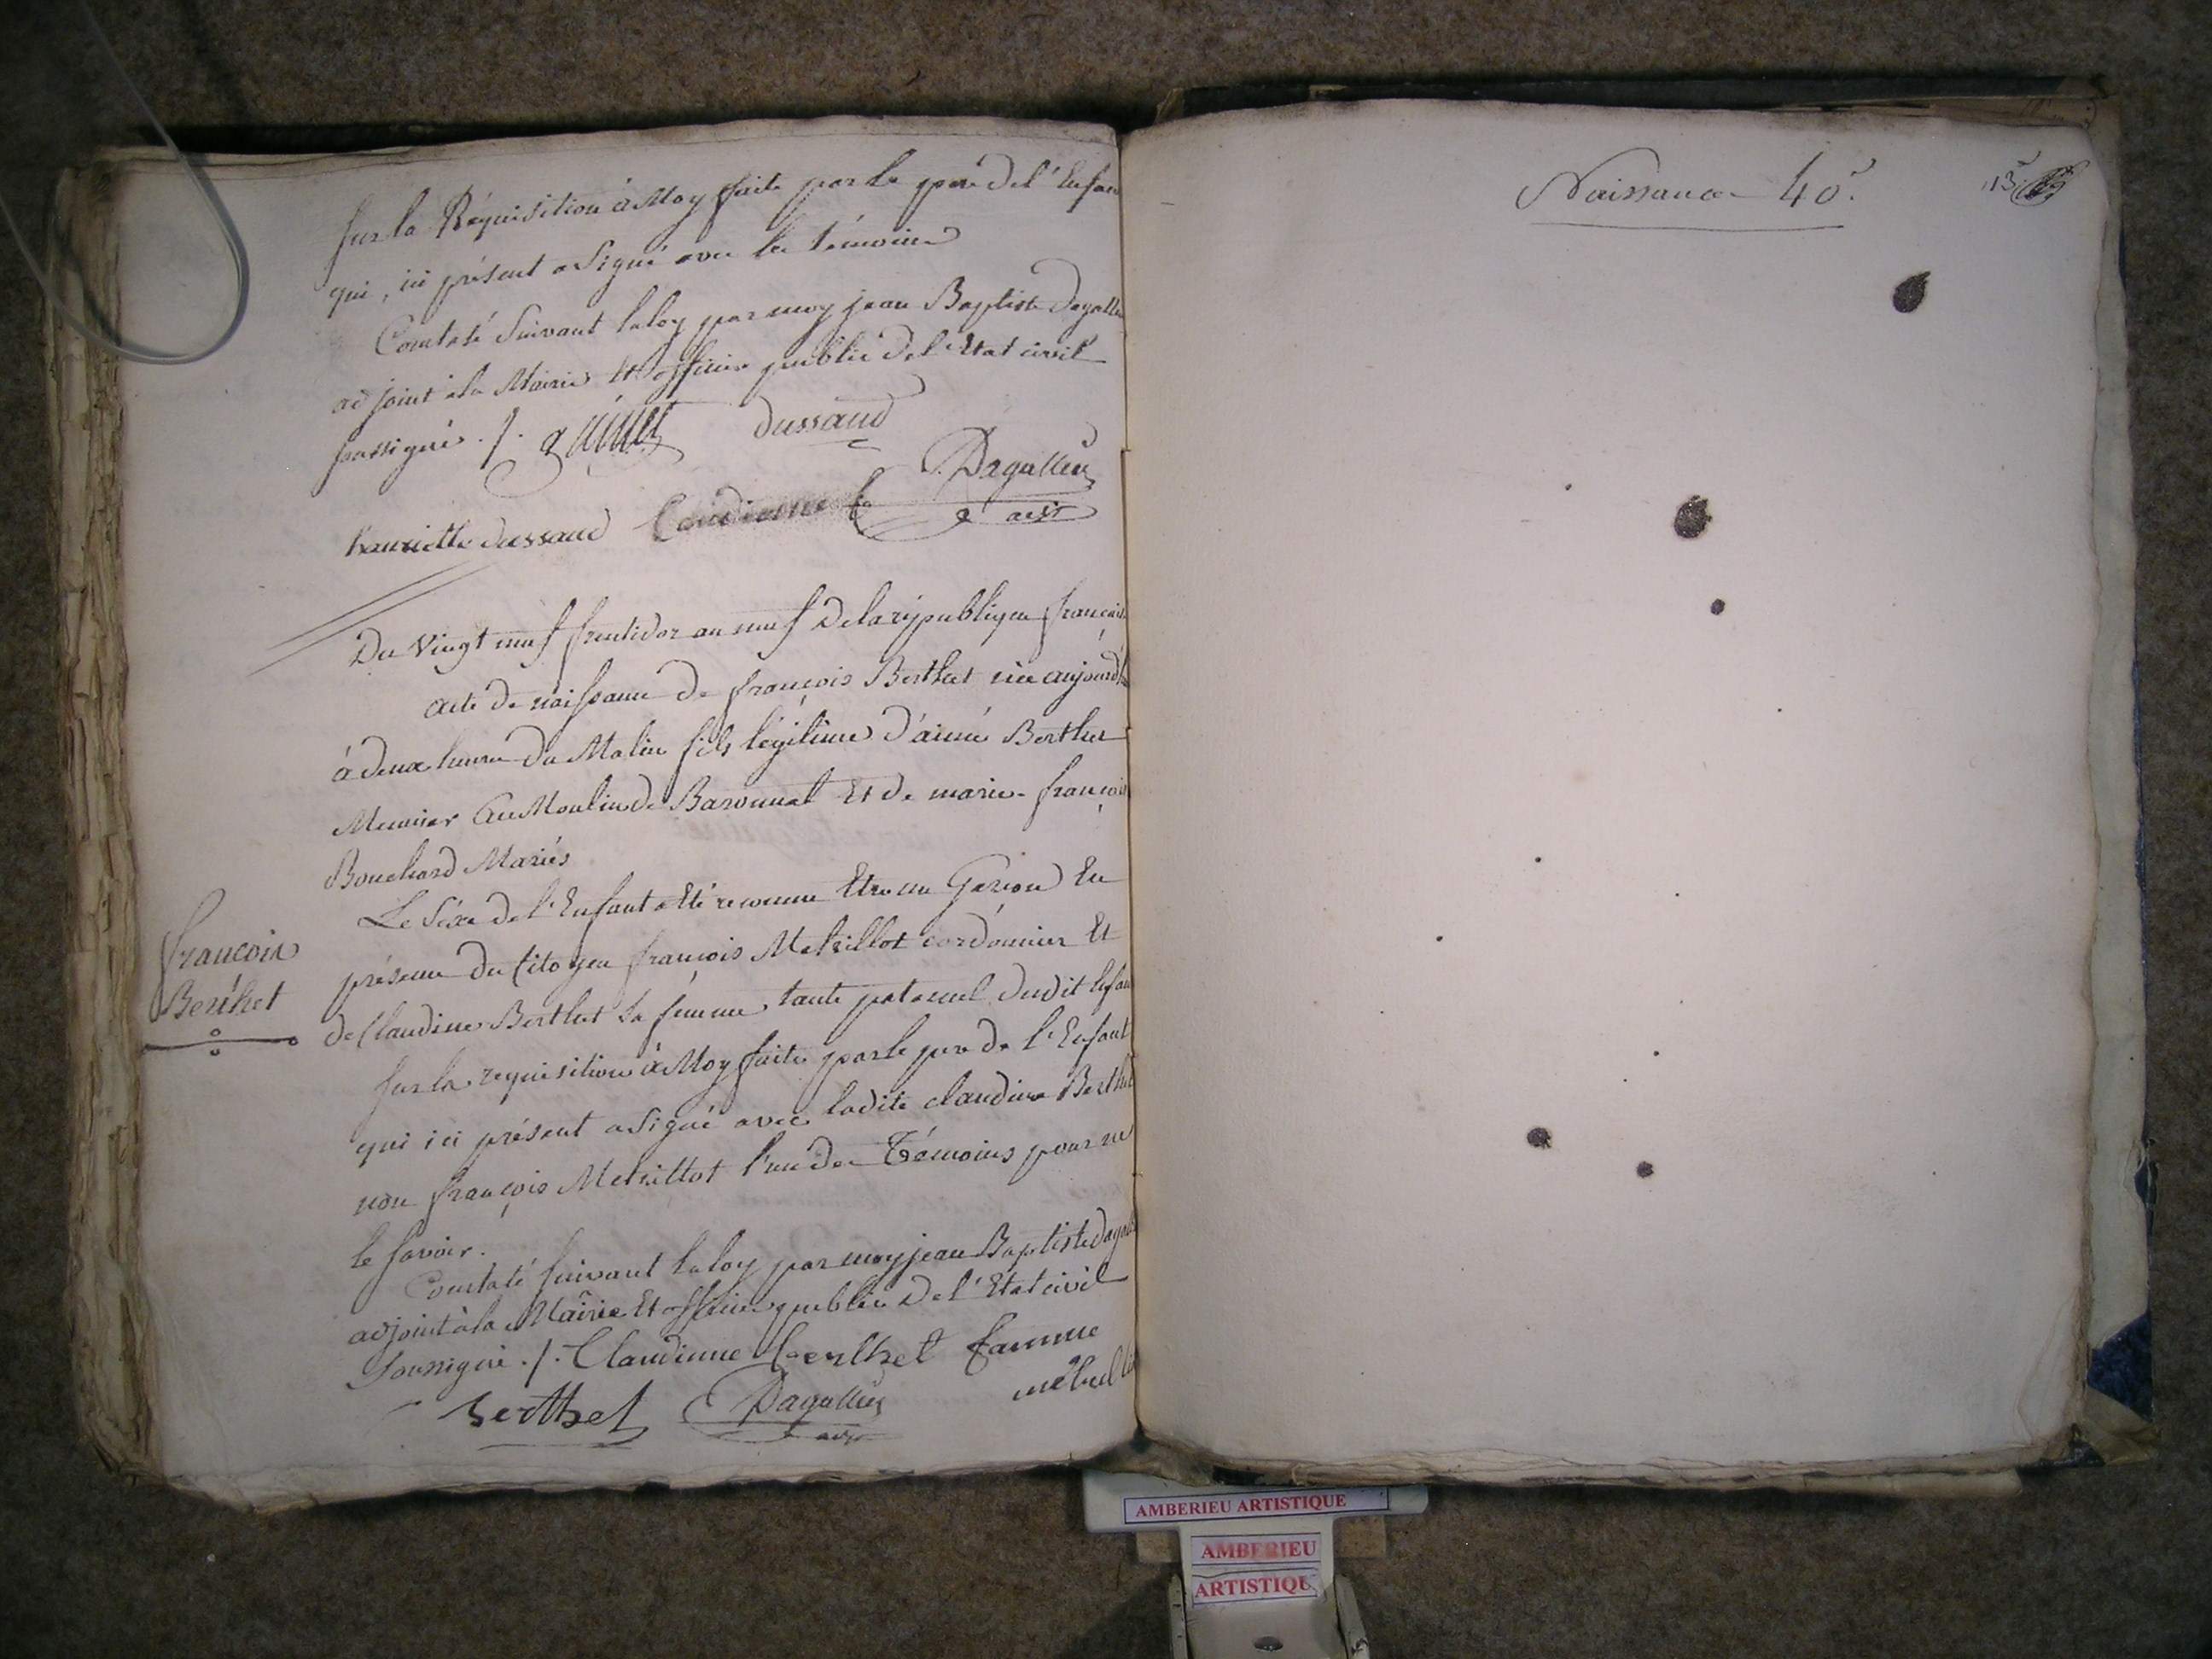 sur la Réquisition à Moy faite par le père de l'Enfan
qui, ici présent a signé avec les témoins
Constaté Suivant la loy par moy jean Baptiste Dagallie
adjoint à la Mairie et officier public de l'Etat civil
soussigné ./.
dussaud
Dagallier
henriette dussaud
adjt
Du Vingt neuf fructidor an neuf De la république françois
acte de naissance de françois Berthet née aujourd'h
à deux heures du Matin fils légitime d'aimé Berthet
Meunier Au Moulin de Baronnat Et de marie françois
Bouchard Mariés
Le Sexe de l'Enfant a Eté reconnu Etre un Garson En
présence du Citoyen françois Metrillot cordonnier Et
de Claudine Berthet sa femme tante paternel dudit Enfan
françois
Berthet
sur la requisition à Moy faite par le pere de l'Enfant
qui ici présent a signé avec ladite claudine Berthet
non françois Metrillot l'un des Témoins pour ne
le savoir.
Constaté suivant la loy par moy jean Baptiste Dagall
adjoint à la Mairie Et officier public De l'Etat civil
Soussigné ./. Claudinne berthet famme
berthet Dagallier
adjt
Naissance 40
13
AMBERIEU ARTISTIQUE
AMBERIEU
ARTISTIQU